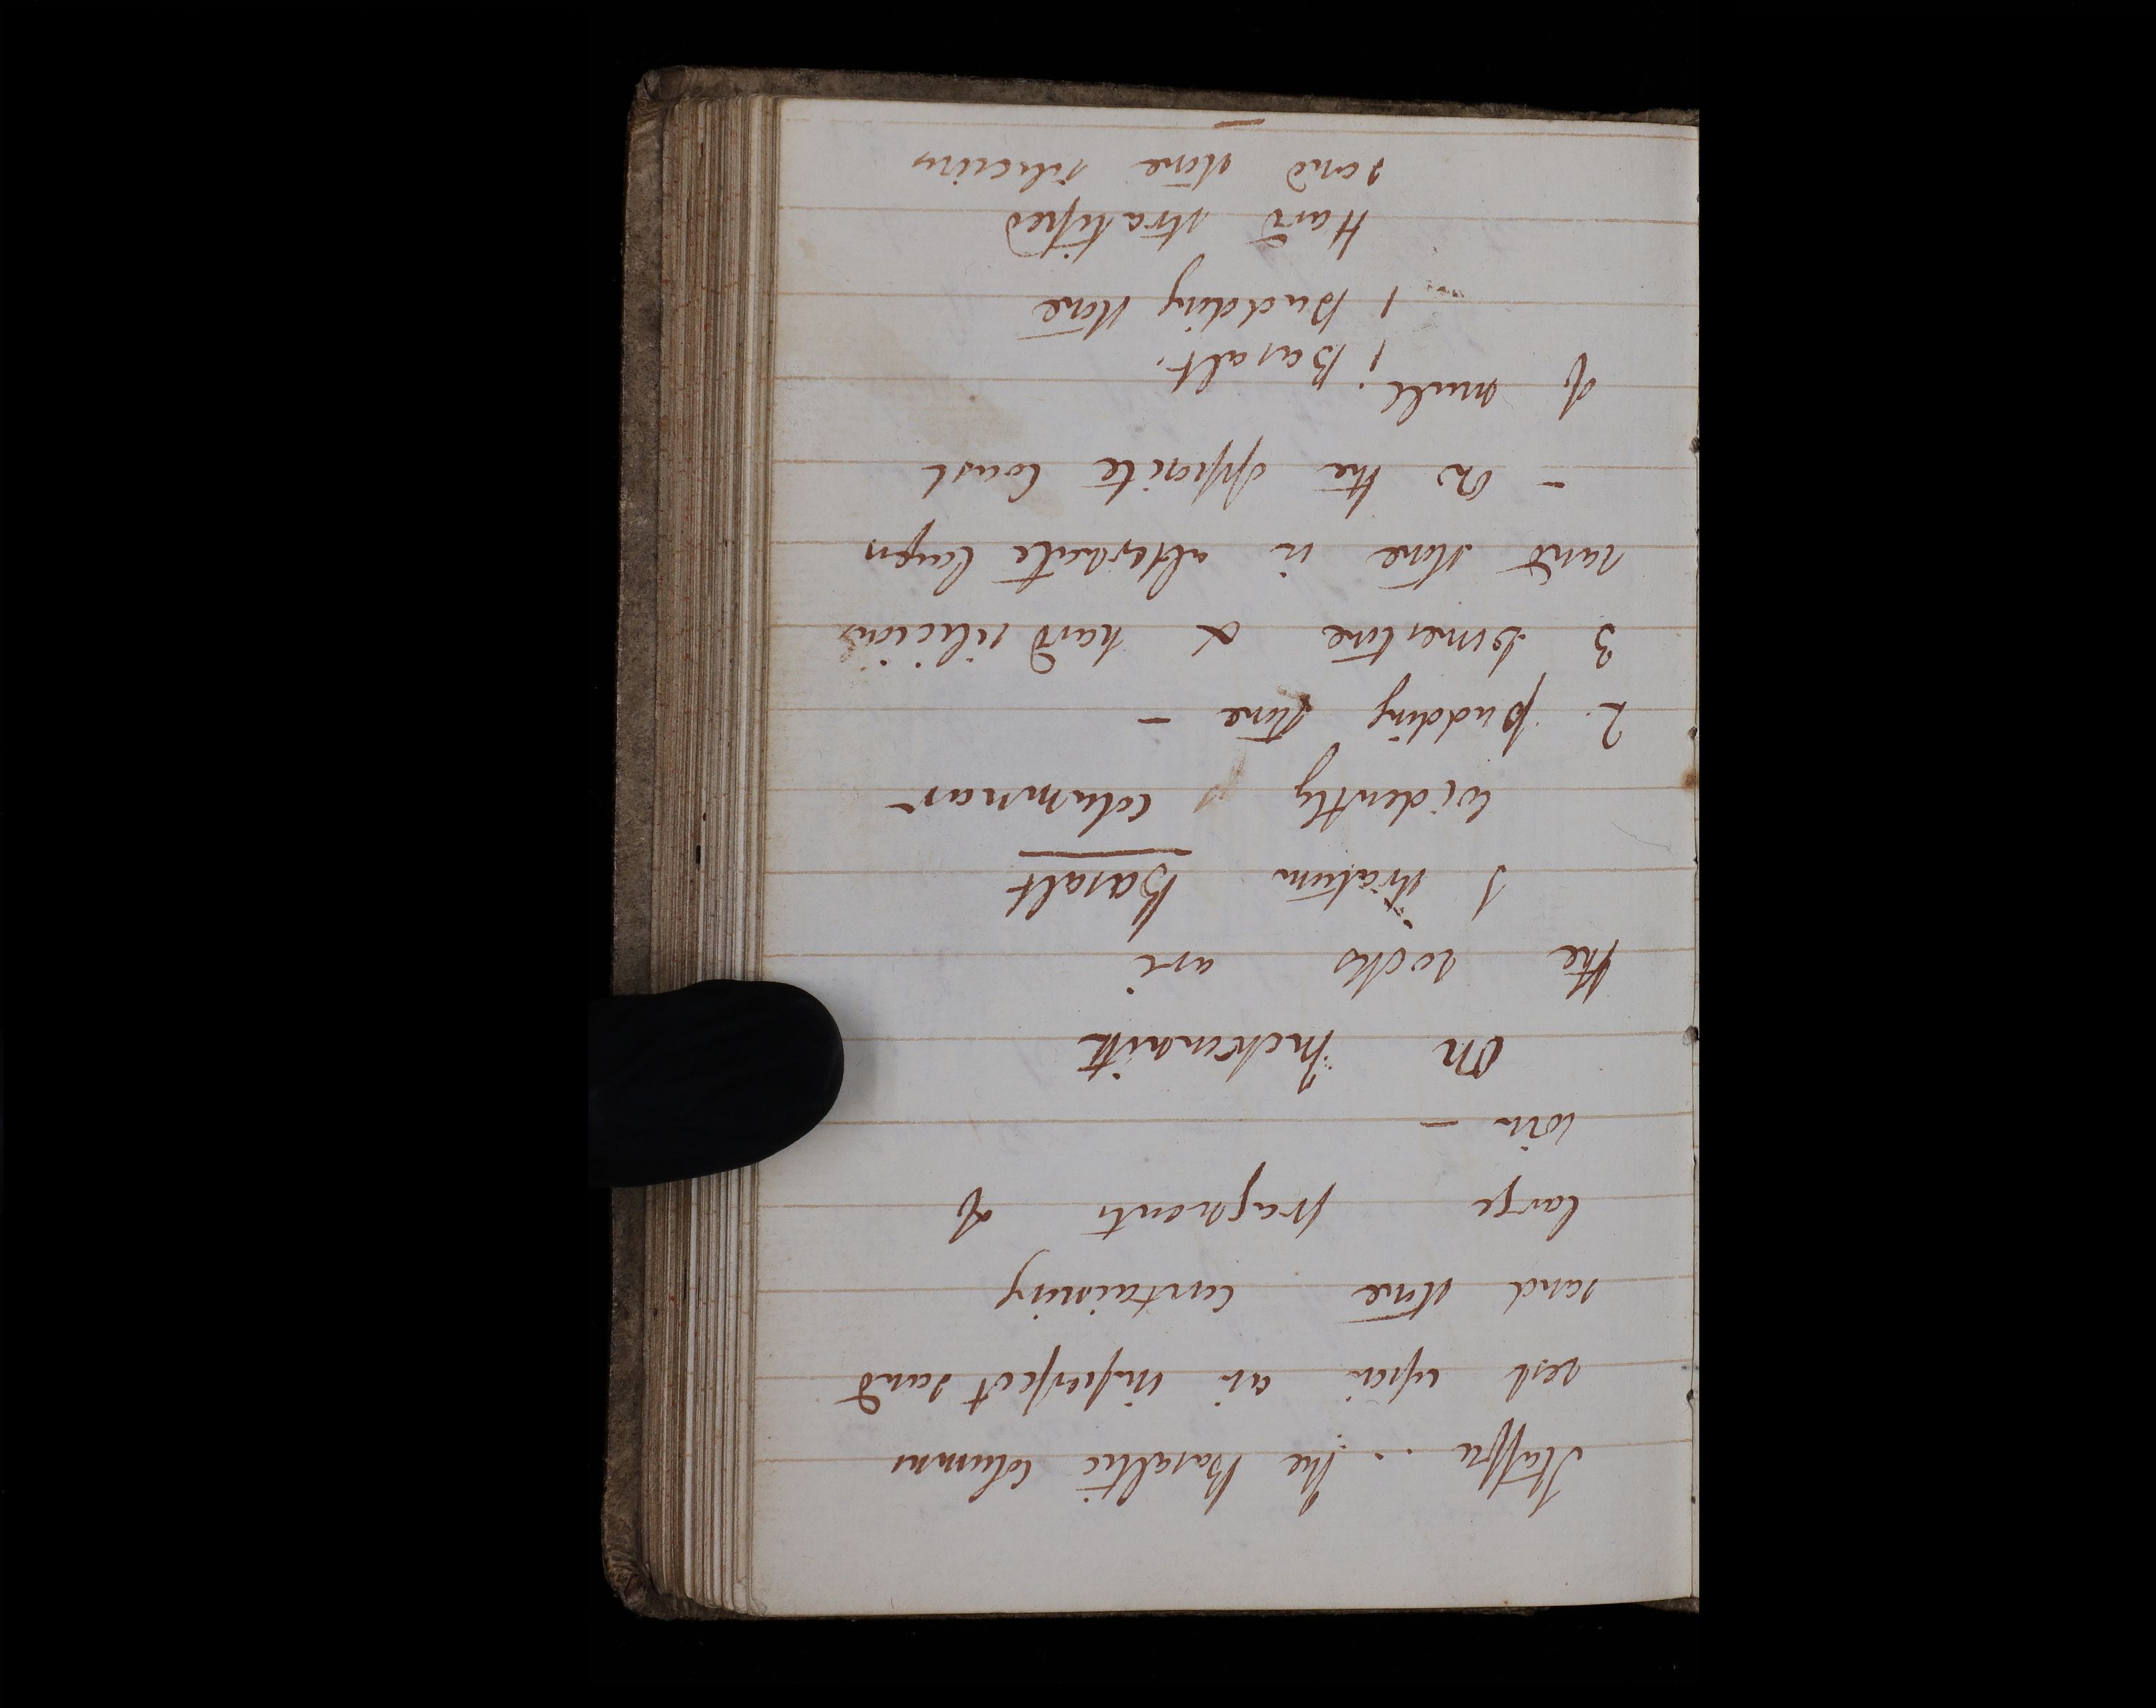 Staffa .. The Basaltic Columns
rest upon an imperfect sand
sand stone containing
large fragments of
coin –
On Inchkenneth
the rocks are
1 stratum Basalt
evidently columnar
2 pudding stone –
3 Limestone & hard silicious
sand stone in alternate layers
– On the opposite Coast
of mull; 1 Basalt.
1 pudding stone
Hard stratified
sand stone silicious